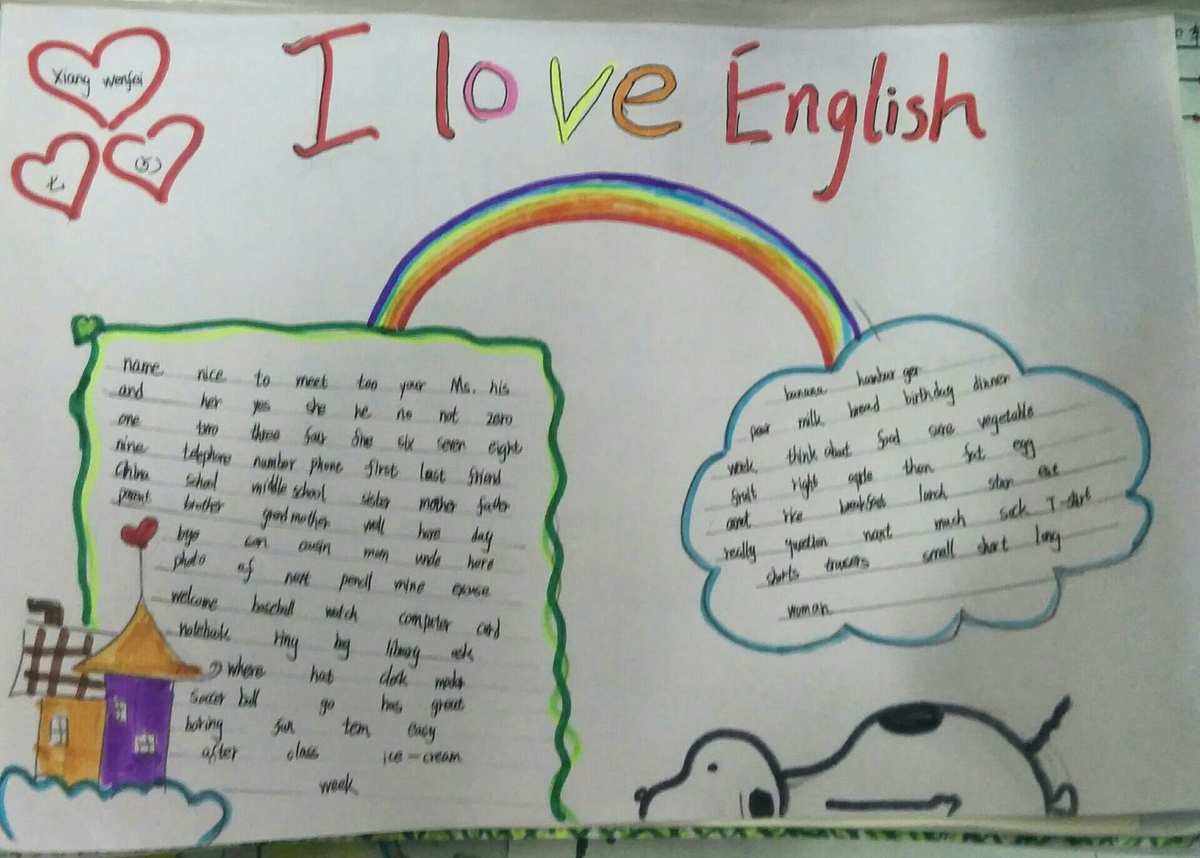 Xiang Wenfei
七
(5)
I love English
name nice to meet too your Ms. his
and her yes she he no not zero
one two three four five six seven eight
nine telephone number phone first last friend
China school middle school sister mother father
parent brother grandmother well here day
bye son cousin mom uncle here
photo of next pencil mine excuse
welcome baseball watch computer card
notebook ring bag library ask
where hat clock
soccer ball go has great
boring fun easy
after class ice-cream
week
banana hamburger
pear milk bread birthday dinner
week think about food sure vegetable
fruit right apple then eat egg
carrot rice breakfast lunch star
really question want much sock T-shirt
shorts trousers small short long
woman